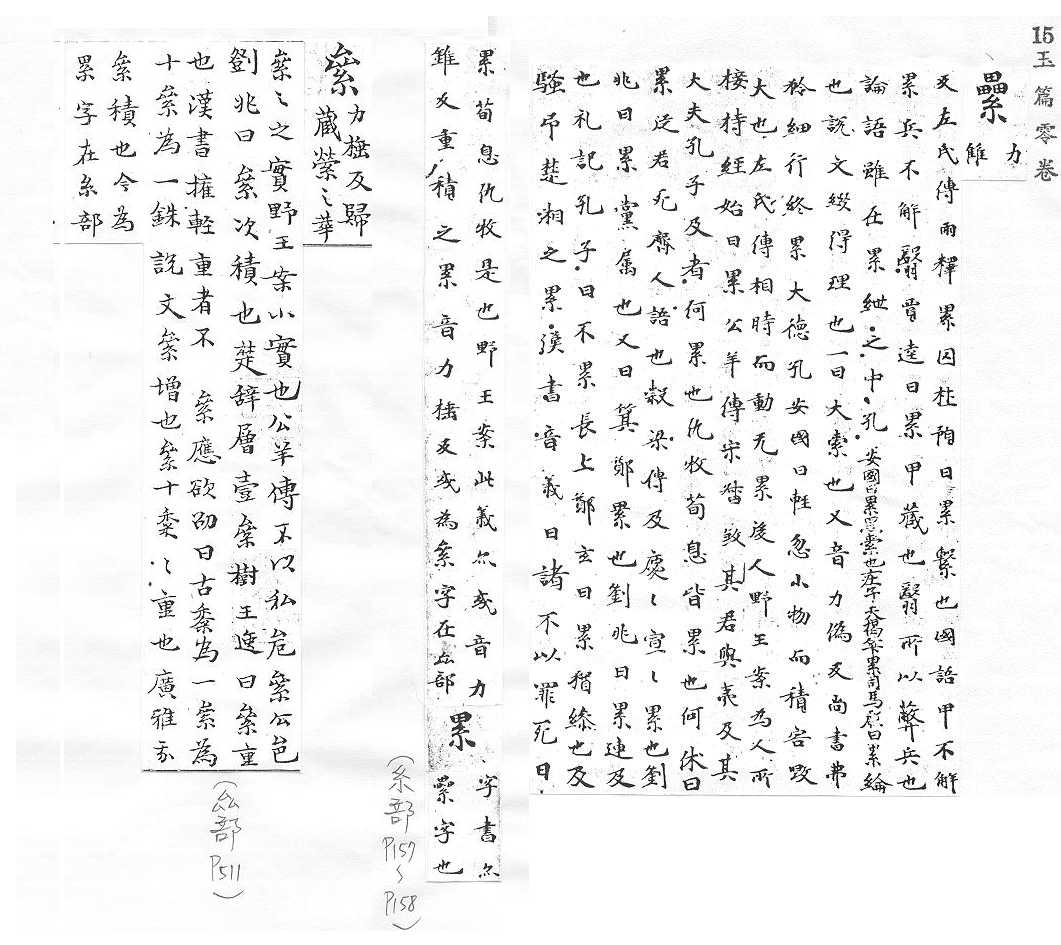 15 玉篇零卷
纍 力雖
反左氏傳兩釋累囚杜預曰累繫也國語甲不解
累兵不解翳賈逵曰累甲藏也翳所以蔽兵也
論語雖在累紲之中孔安國曰累黑索也莊子夫揭竿累司馬彪曰累綸
也說文綴得理也一曰大索也又音力僞反尚書弗
矜細行終累大德孔安國曰輕忽小物而積害毀
大也左氏傳相時而動无累後人野王案為人所
接持經始曰累公羊傳宋督弒其君與夷及其
大夫孔子及者何累也仇牧荀息皆累也何休曰
累從君死齊人語也穀梁傳及處〻宣〻累也劉
兆曰累黨属也又曰箕鄭累也劉兆曰累連及
也礼記孔子曰不累長上鄭玄曰累猶絲也及
騷吊楚湘之累漢書音義曰諸不以罪死曰
累荀息仇牧是也野王案此義亦或音力
雖反重積之累音力捶反或為絫字在厽部
累 字書亦纍字也
(糸部 P157〜P158)
絫 力捶反歸藏縈〻之華
絫〻之實野王案小實也公羊傳不以私危絫公邑
劉兆曰絫次積也楚辞層壹絫樹王逸曰絫重
也漢書權輕重者不 絫應劭曰古黍為一絫為
十絫為一銖說文絫增也絫十黍〻重也廣雅亦
絫積也今為累字在糸部
(厽部 P511)